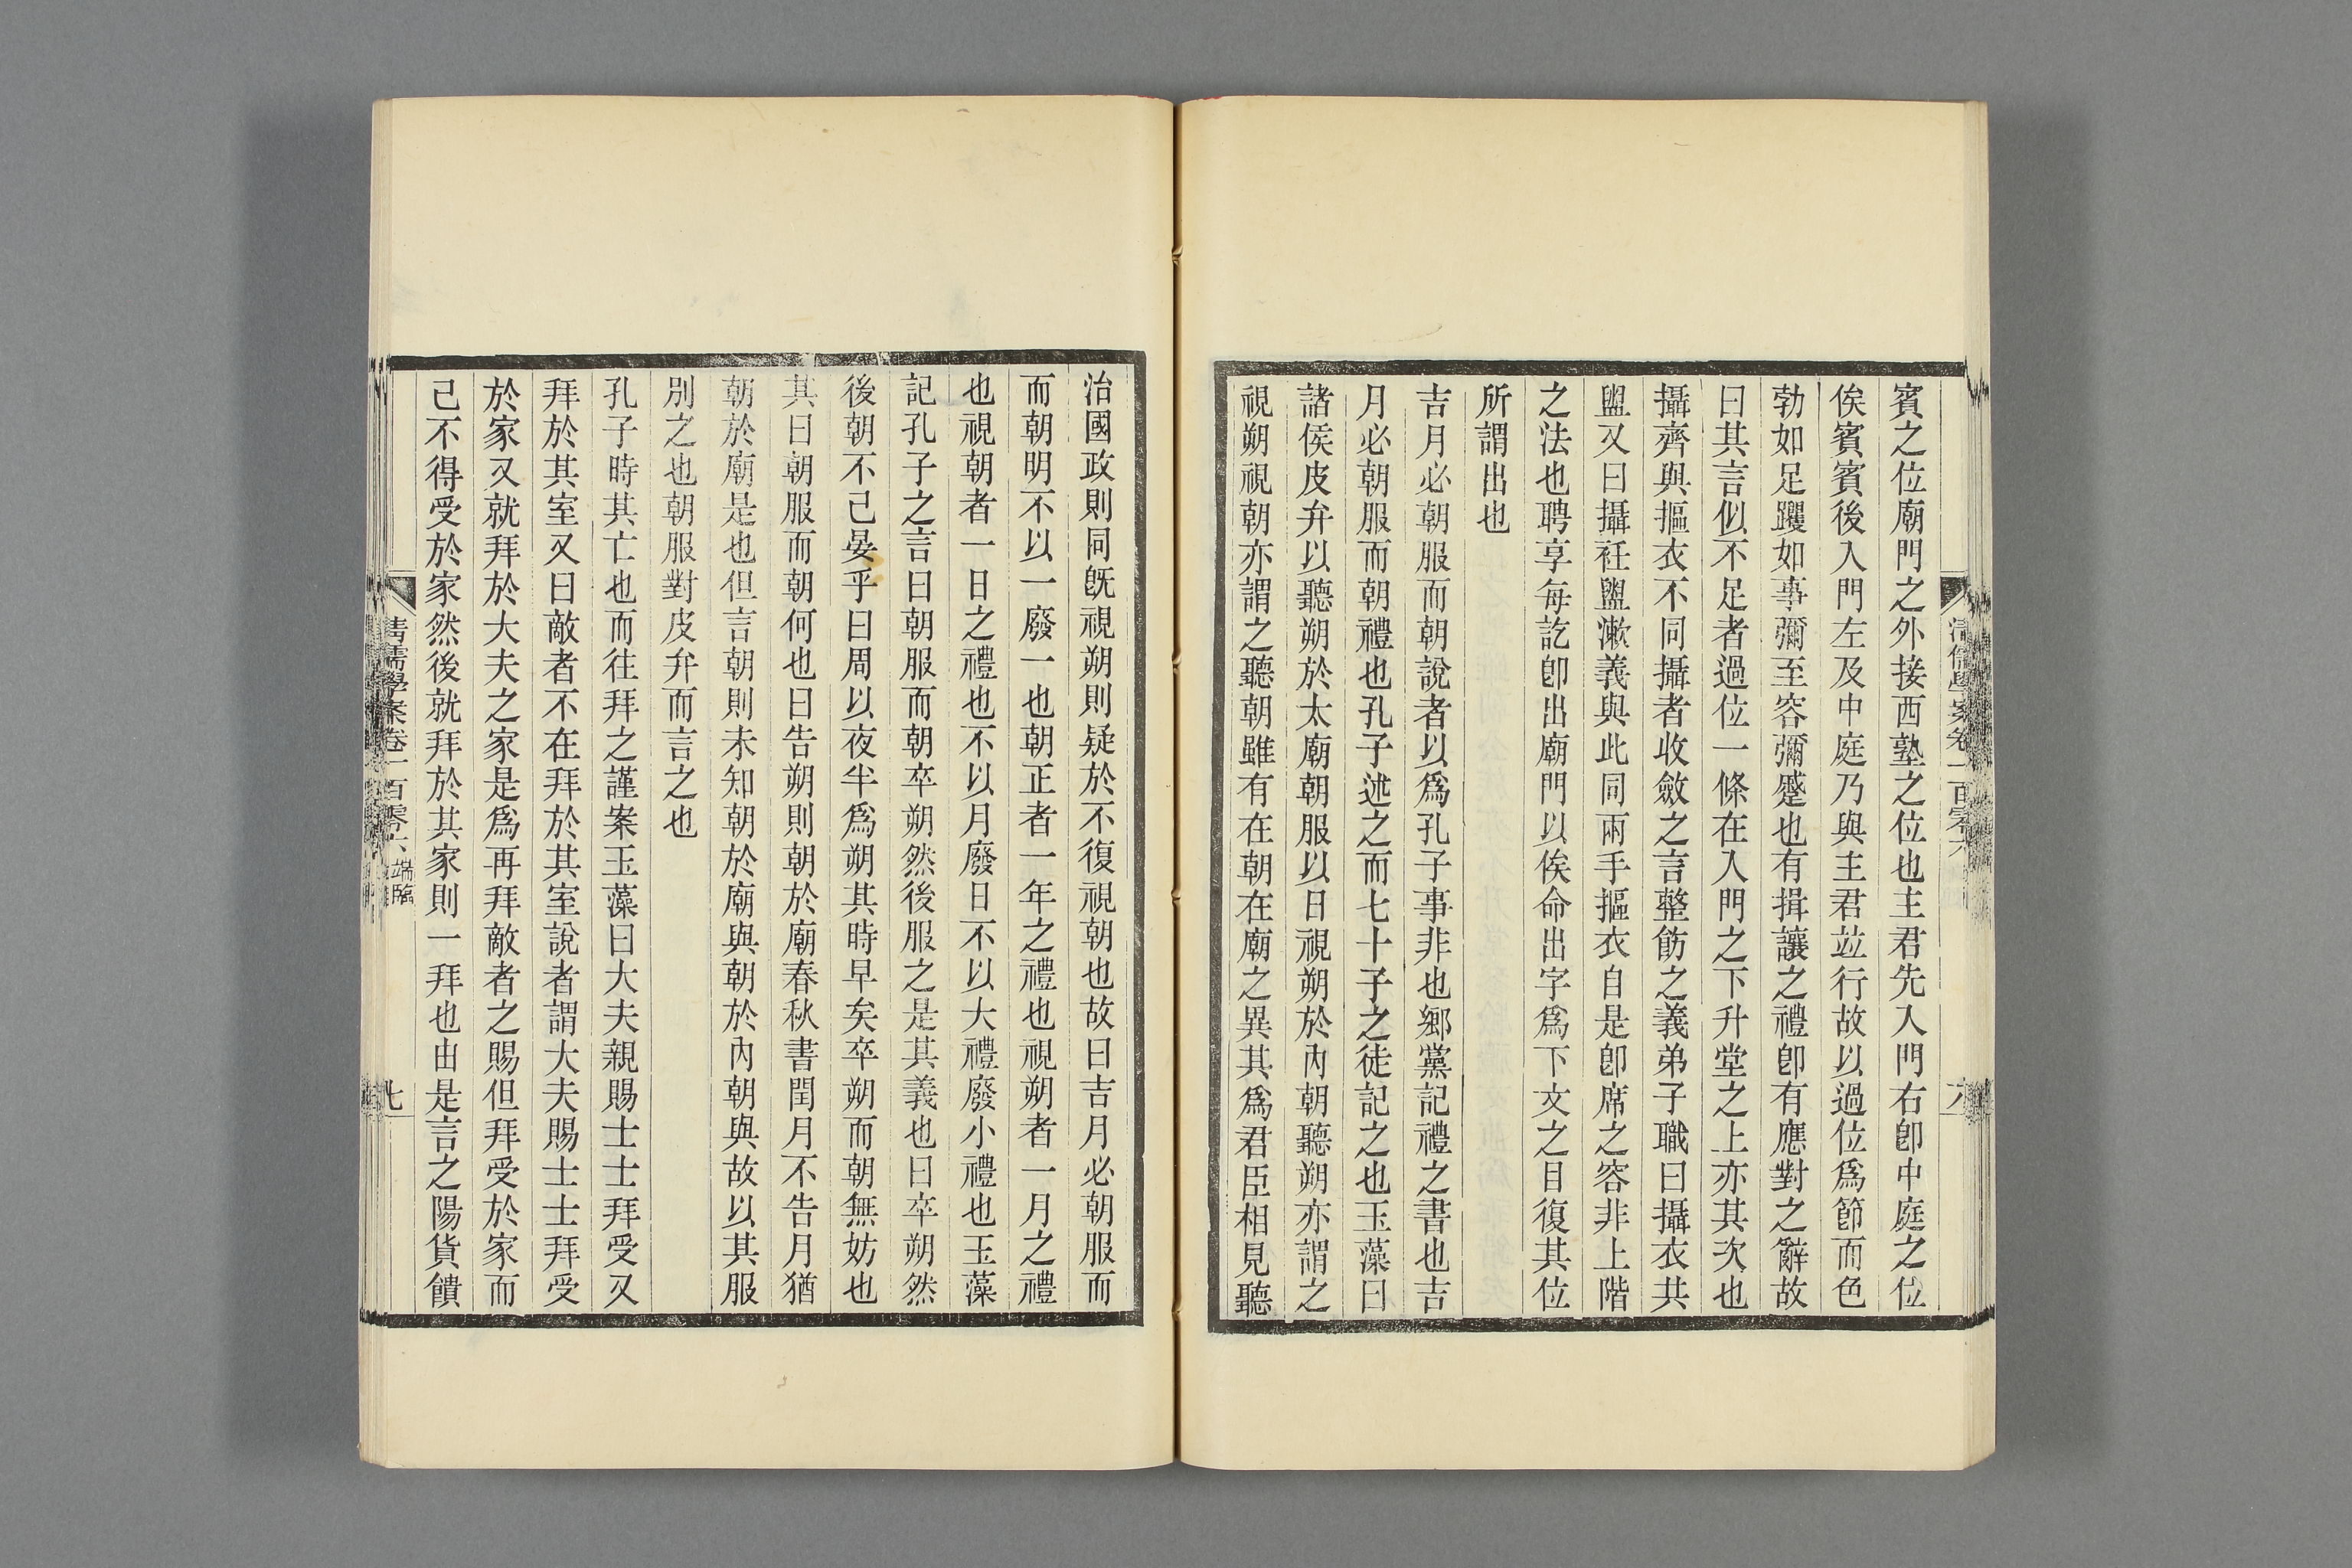 賓之位廟門之外接西塾之位也主君先入門右卽中庭之位
俟賓賓後入門左及中庭乃與主君並行故以過位爲節而色
勃如足躩如事彌至容彌蹙也有揖讓之禮卽有應對之辭故
曰其言似不足者過位一條在入門之下升堂之上亦其次也
攝齊與摳衣不同攝者收斂之言整飭之義弟子職曰攝衣共
盥又曰攝衽盥漱義與此同兩手摳衣自是卽席之容非上階
之法也聘享每訖卽出廟門以俟命出字爲下文之目復其位
所謂出也
吉月必朝服而朝說者以爲孔子事非也鄉黨記禮之書也吉
月必朝服而朝禮也孔子述之而七十子之徒記之也玉藻曰
諸侯皮弁以聽朔於太廟朝服以日視朔於內朝聽朔亦謂之
視朔視朝亦謂之聽朝雖有在朝在廟之異其爲君臣相見聽
治國政則同旣視朔則疑於不復視朝也故曰吉月必朝服而
而朝明不以一廢一也朝正者一年之禮也視朔者一月之禮
也視朝者一日之禮也不以月廢日不以大禮廢小禮也玉藻
記孔子之言曰朝服而朝卒朔然後服之是其義也曰卒朔然
後朝不已晏乎曰周以夜半爲朔其時早矣卒朔而朝無妨也
其曰朝服而朝何也曰告朔則朝於廟春秋書閏月不告月猶
朝於廟是也但言朝則未知朝於廟與朝於內朝與故以其服
別之也朝服對皮弁而言之也
孔子時其亡也而往拜之謹案玉藻曰大夫親賜士士拜受又
拜於其室又曰敵者不在拜於其室說者謂大夫賜士士拜受
於家又就拜於大夫之家是爲再拜敵者之賜但拜受於家而
已不得受於家然後就拜於其家則一拜也由是言之陽貨饋
清儒學案卷一百零六 端臨
七